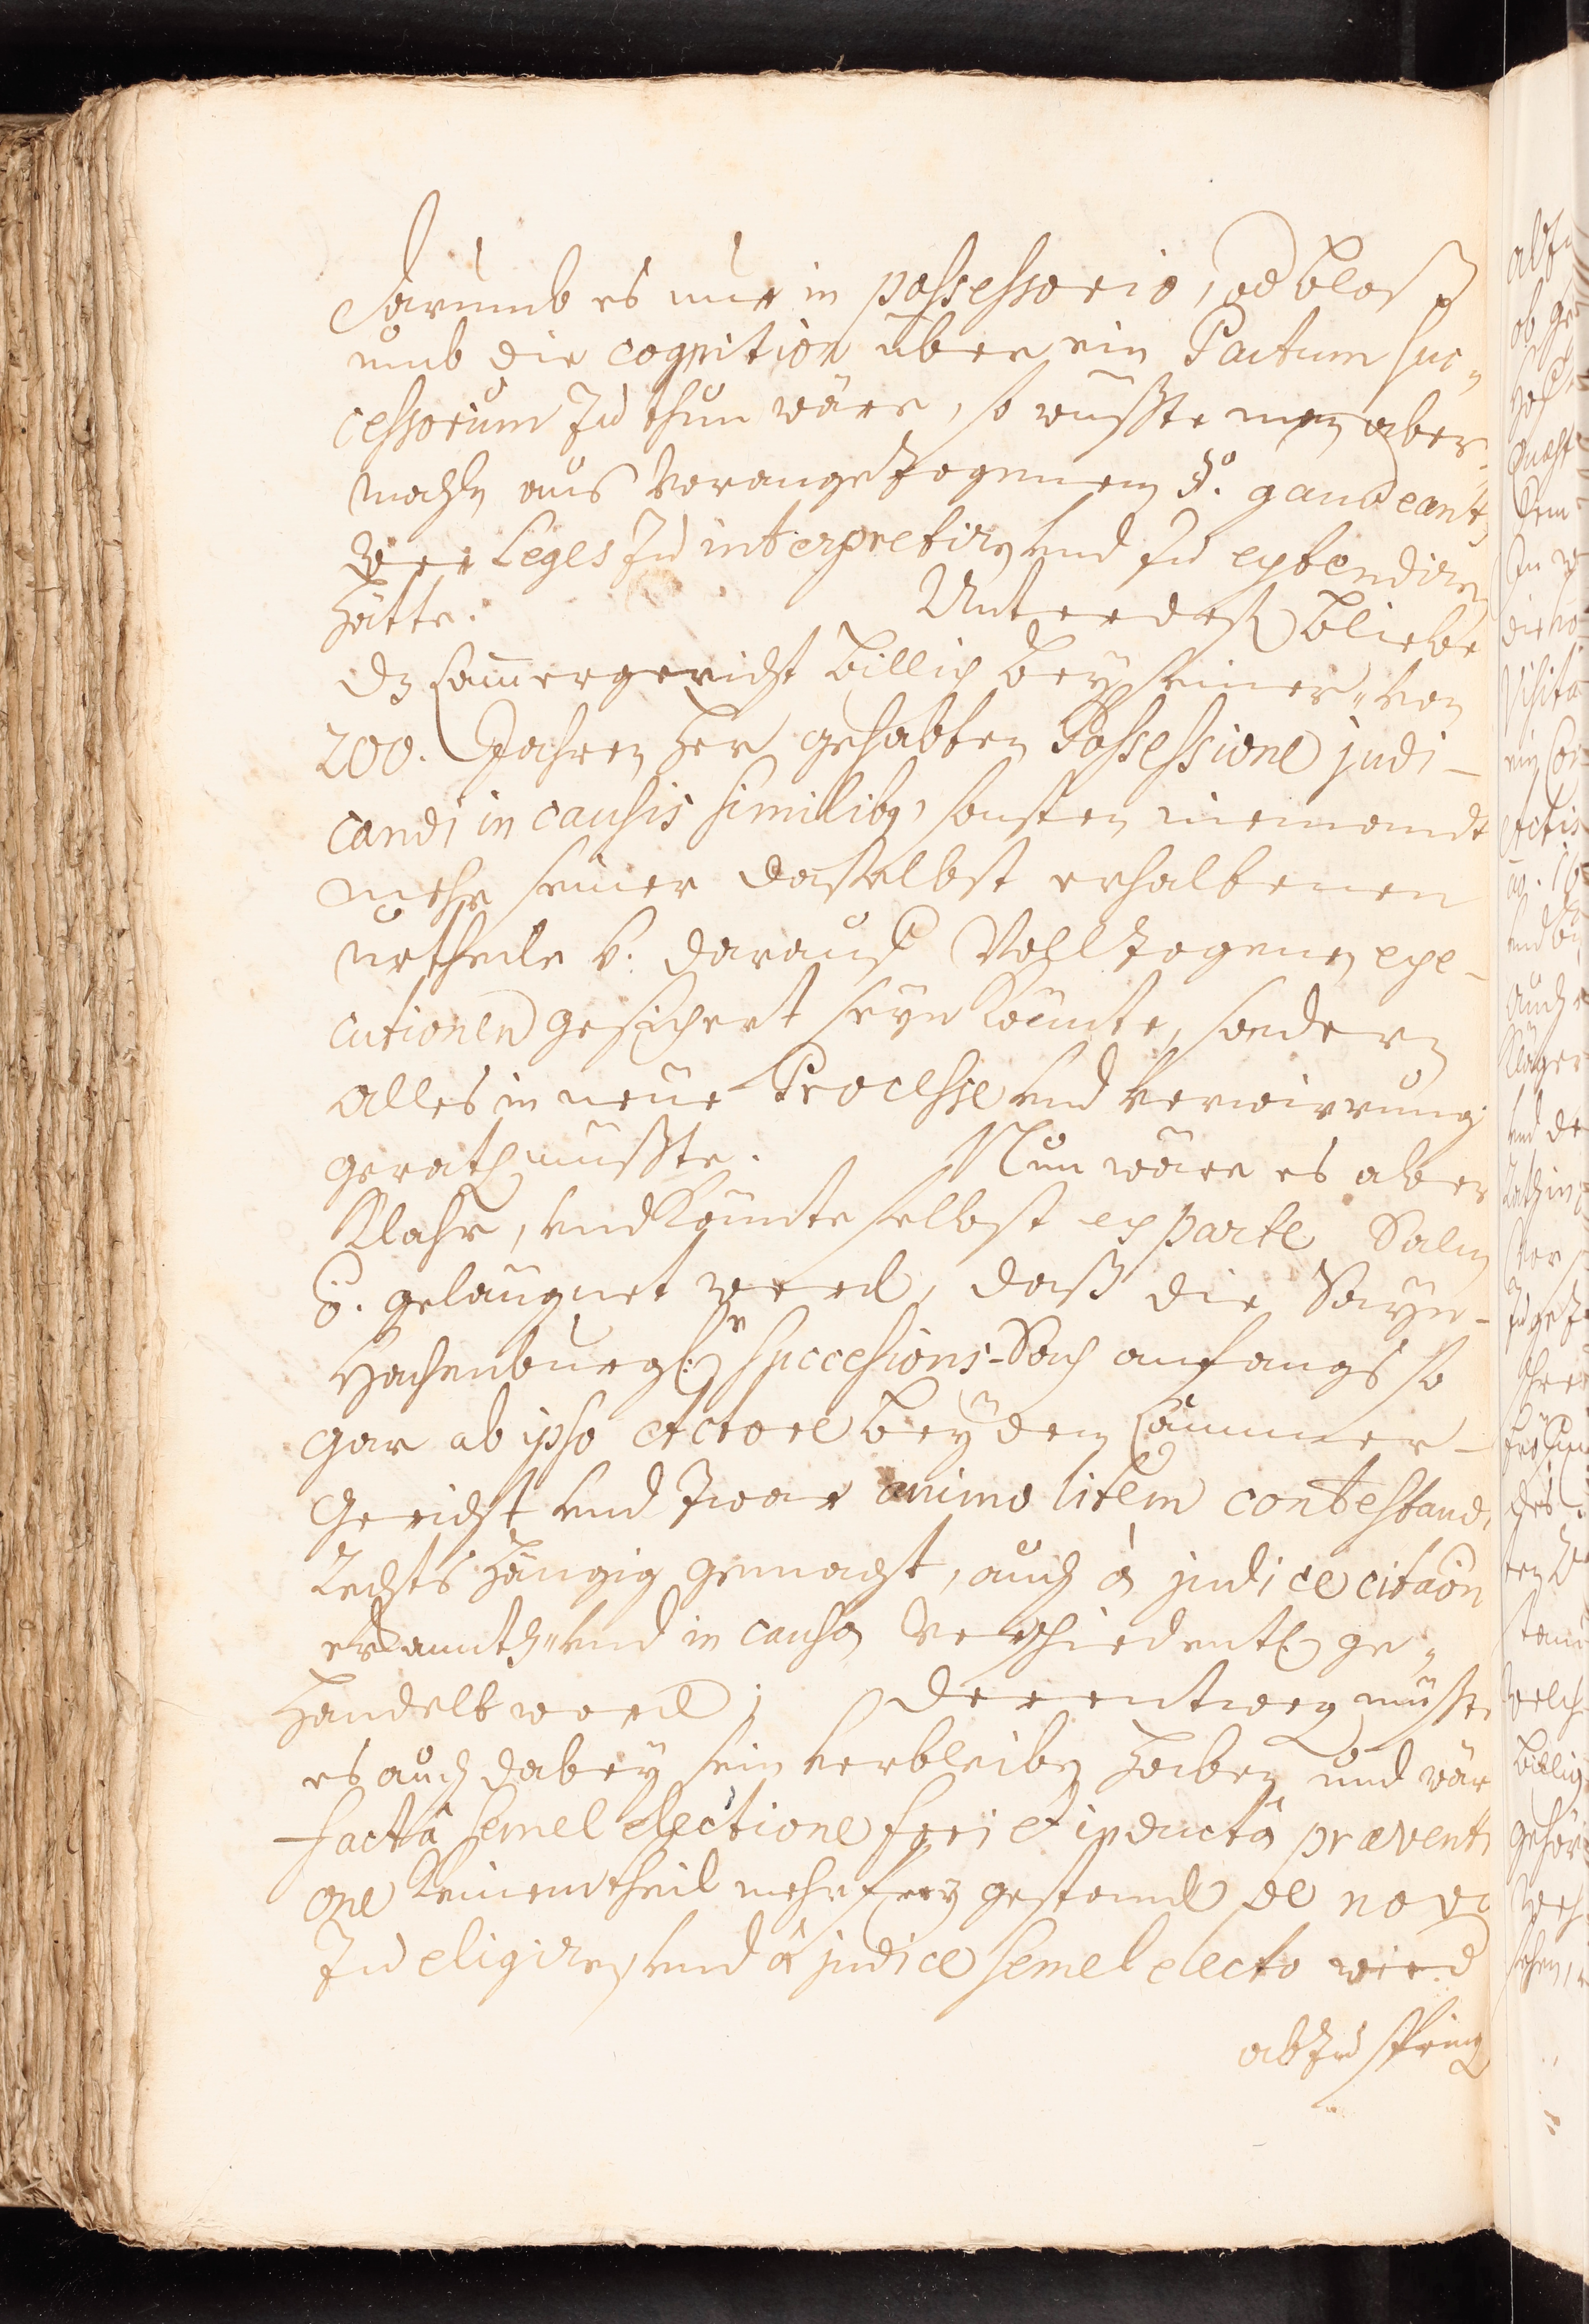 Darumb es nur in possessorio, od bloß
umb die cognition über ein Pactum suc„
cessorium zu thun wäre, so wüsste man aber-
mahln aus Vorangezogenem §o. gaudeant,
wer Leges zu interpretirn und zu extendiren
hätte. Unterdeß bliebe
dz Cammergericht billich bey seiner „ von
200. Jahren her gehabten Possessione judi-
candi in causis similibq, sonsten niemandt
mehr seiner daselbst erhaltenen
urtheile v. darauf Vollzogenen exe-
cutionen gesichert seyn könnte, sondern
alles in neue Processe und Verwirrung
gerath müsste. Nun wäre es aber
Klahr, und könnte selbst ex parte Salm
ö. geläugnet werd, daß die Sayn-
Hachenburgl. Successions-Sach anfangs so
gar ab ipso Actore bey dem Cammer-
Gericht und zwar animo litem contestandi
Rechts hängig gemacht, auch à judice citaon
erkannth „ und in causa verschiedentl. ge„
handelt word; derentweg müsste
es auch dabey sein verbleiben haben und wär
facta semel electione fori et inducta praeventi
one keinem theil mehr frey gestand de novo
zu eligiren, und à judice semel electo wied
abzuspring